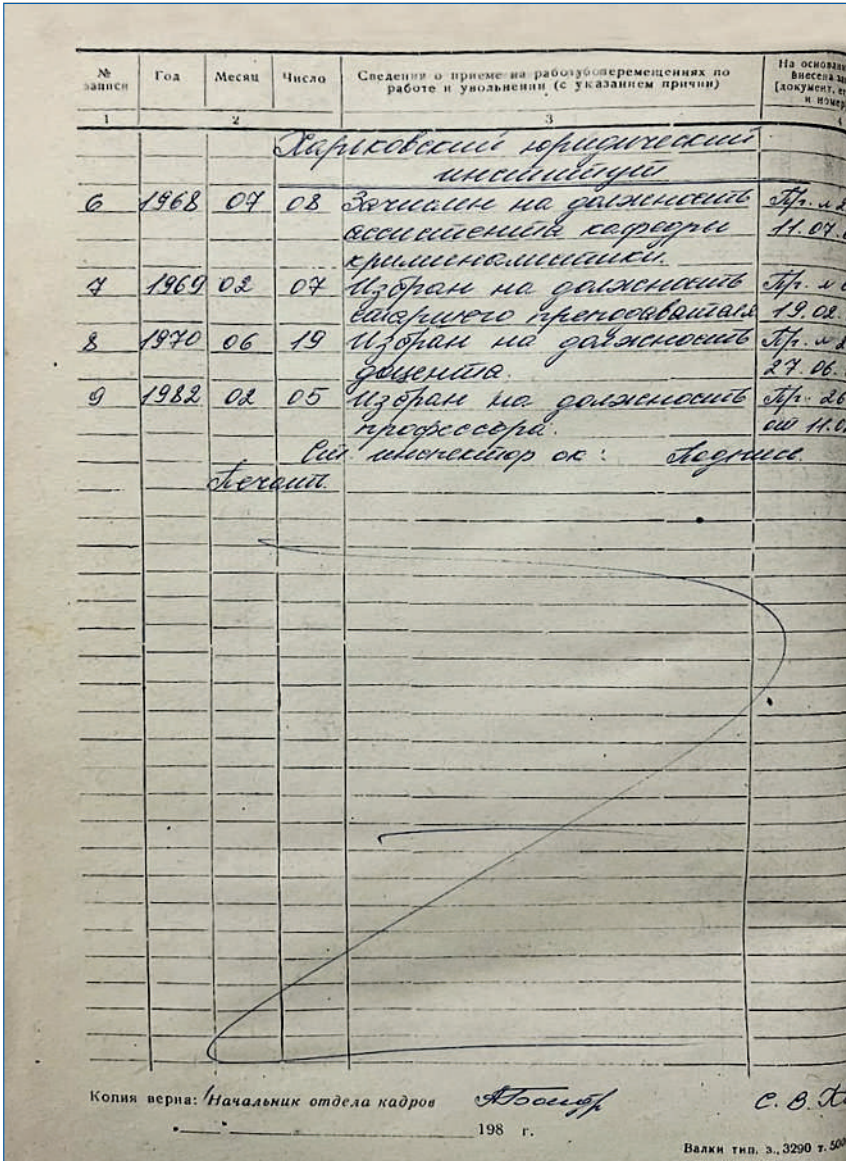 № записи
Год
Месяц
Число
Сведения о приеме на работу, перемещениях по работе и увольнении (с указанием причин)
На основани
внесена за
(документ, е
и номер
1
2
3
Харьковский юридический
институт
6 1968 07 08 Зачислен на должность Пр. №
ассистента кафедры 11.07.
криминалистики.
7 1969 02 07 Избран на должность Пр. №
старшего преподавателя 19.02.
8 1970 06 19 Избран на должность Пр. №
доцента. 27.06.
9 1982 02 05 Избран на должность Пр. 26
профессора. от 11.0
Ст. инспектор ок: Подпись.
Печать.
Копия верна: Начальник отдела кадров С. В.
198 г.
Валки тип. з., 3290 т.